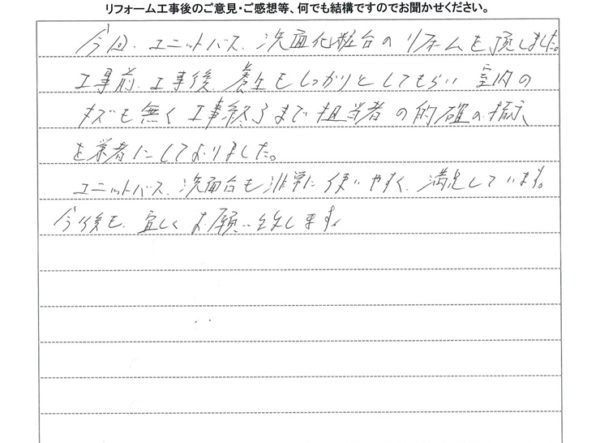 リフォーム工事後のご意見・ご感想等、何でも結構ですのでお聞かせください。
今回、ユニットバス、洗面化粧台のリフォームを頂しました。
工事前、工事後、養生もしっかりとしてもらい室内の
キズも無く工事終了まで担当者の的確の指示
を業者にしておりました。
ユニットバス、洗面台も非常に使いやすく、満足しています。
今後も、宜しくお願い致します。